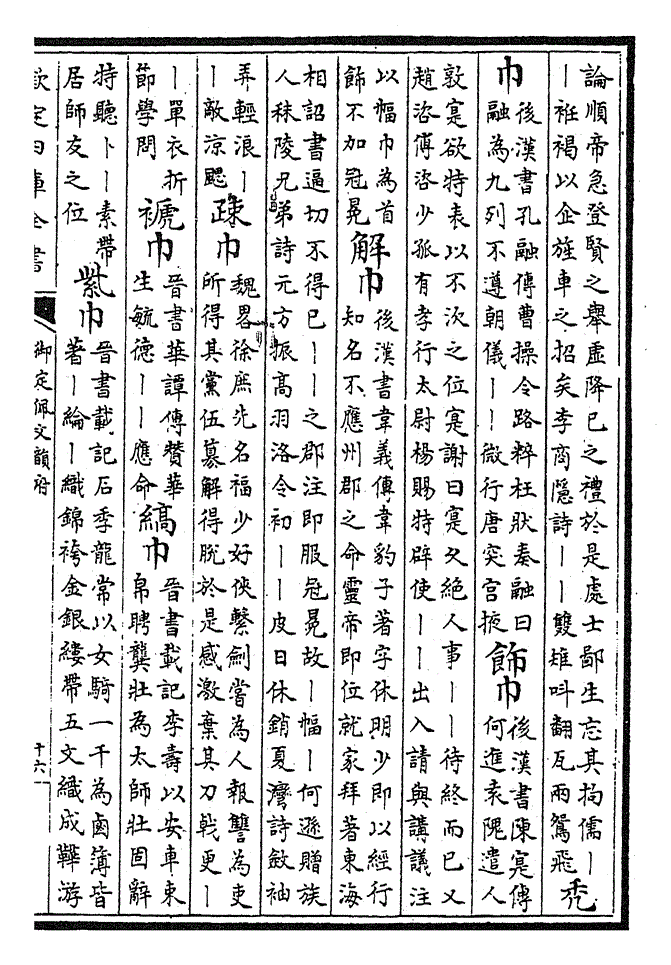 論順帝急登賢之舉虛降已之禮於是處士鄙生忘其拘儒丨
丨袵褐以企旌車之招矣李商隱詩丨丨雙雉呌翻瓦兩鴛飛
禿
巾
後漢書孔融傳曹操令路粹枉狀奏融曰
融為九列不遵朝儀丨丨微行唐突宮掖
飾巾
後漢書陳寔傳
何進袁隗遣人
敦寔欲特表以不次之位寔謝曰寔久絕人事丨丨待終而已又
趙咨傅咨少孤有孝行太尉楊賜特辟使丨丨出入請與講議注
以幅巾為首
飾不加冠冕
解巾
後漢書韋義傳韋豹子著字休明少即以經行
知名不應州郡之命靈帝即位就家拜著東海
相詔書逼切不得已丨丨之郡注即服冠冕故丨幅丨何遜贈族
人秣陵兄弟詩元方振高羽洛令初丨丨皮日休銷夏灣詩斂袖
弄輕浪丨
丨敵涼颸
疎巾
魏畧徐庶先名福少好俠擊劍嘗為人報讐為吏
所得其黨伍簒解得脫於是感激棄其刀戟更丨
丨單衣折
節學問
褫巾
晉書華譚傳贊華
生毓德丨丨應命
縞巾
晉書載記李壽以安車束
帛聘龔壯為太師壯固辭
特聽卜丨素帶
居師友之位
紫巾
晉書載記石季龍常以女騎一千為鹵簿皆
著丨綸丨織錦袴金銀縷帶五文織成鞾游
欽定四庫全書
御定佩文韻府
十六